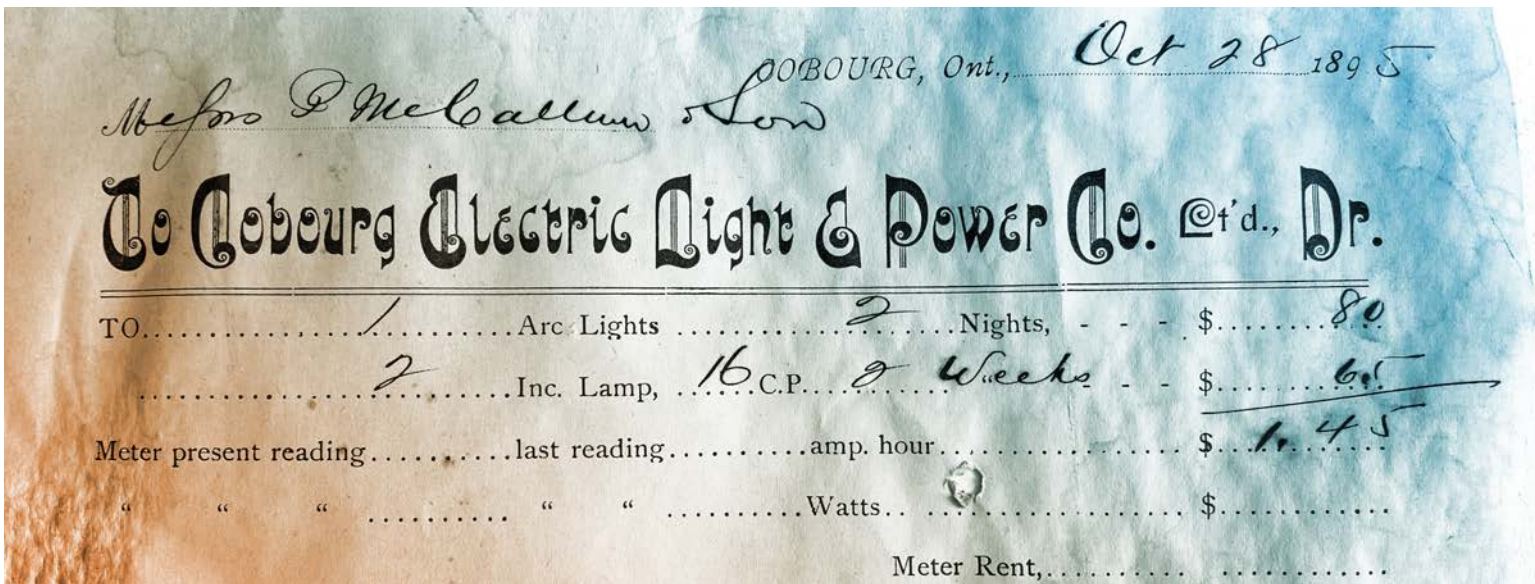 COBOURG, Ont., Oct 28 1895
Messrs P McCallum & Son
To Cobourg Electric Light & Power Co. Lt'd., Dr.
TO..........1..........Arc Lights..........2..........Nights, - - - $..........80
..........2..........Inc. Lamp, ....16 C.P....2 Weeks - - $..........65
Meter present reading..........last reading..........amp. hour.................... $..1.45
“ “ “ .......... “ “ ..........Watts.................... $............
Meter Rent,.......... ............